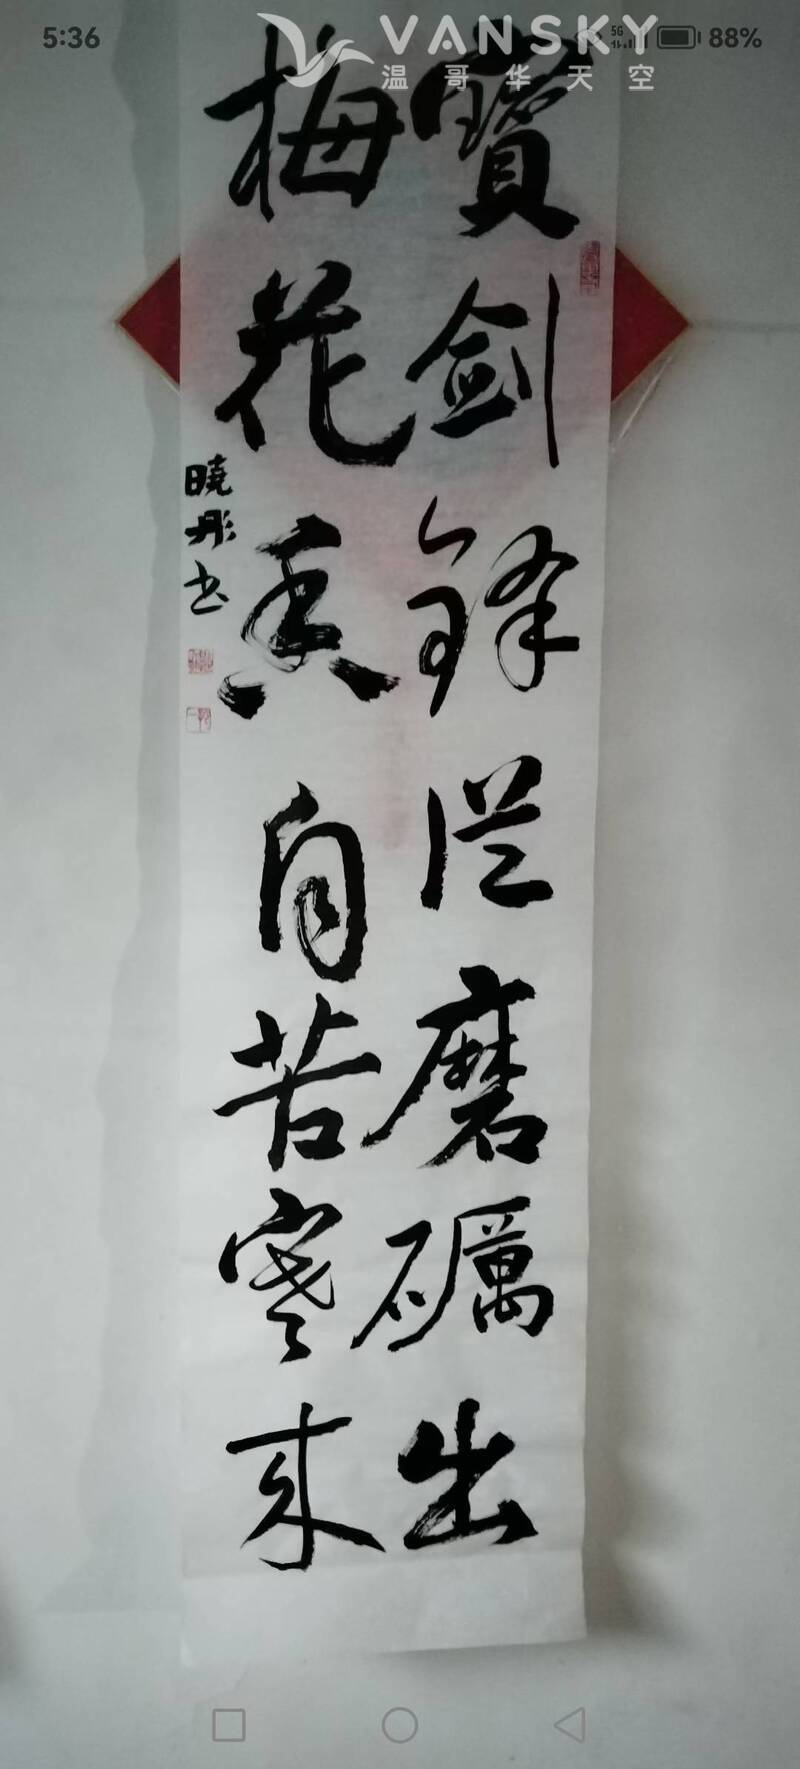 5:36
VANSKY
温哥华天空
5G
88%
寶劍鋒從磨礪出
梅花香自苦寒来
曉彤书